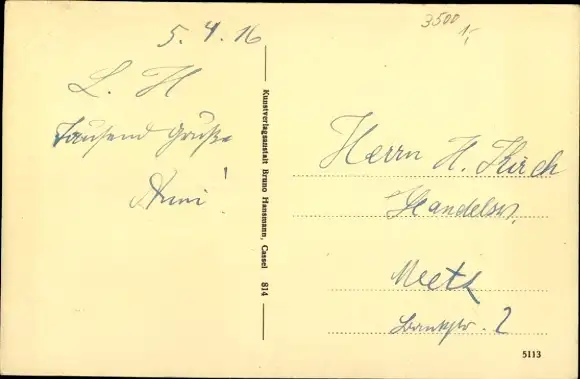 3500
1,-
5. 4. 16
L. H
Tausend Grüße
Anni!
Kunstverlagsanstalt Bruno Hansmann, Cassel 814
Herrn H. Kirch
Handelsv.
Metz
2
5113